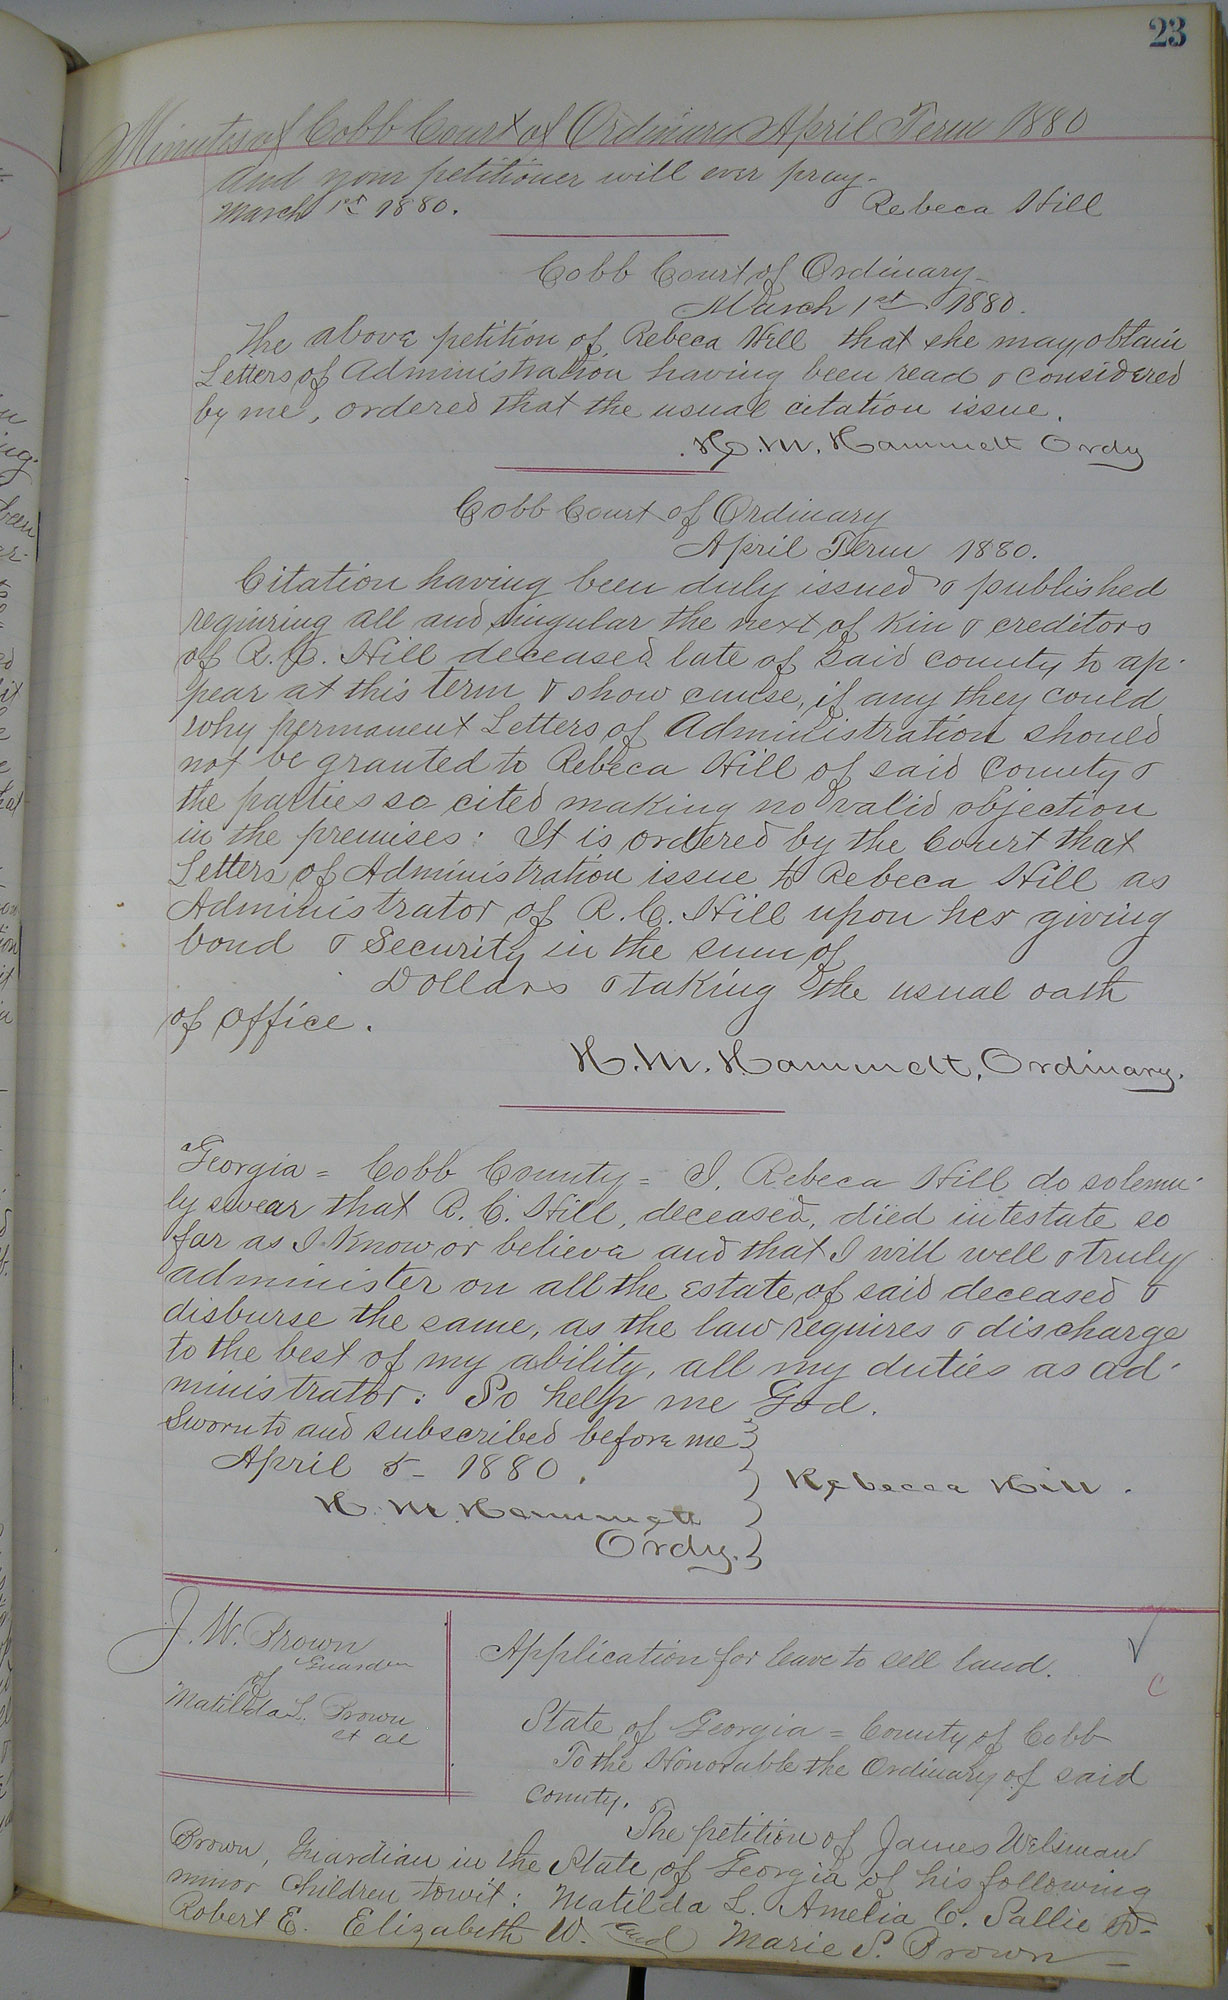 23
Minutes of Cobb Court of Ordinary April Term 1880
and your petitioner will ever pray.
March 1st 1880. Rebeca Hill
Cobb Court of Ordinary
March 1st 1880.
The above petition of Rebeca Hill that she may obtain
Letters of Administration having been read & considered
by me, ordered that the usual citation issue.
H. M. Hammett Ordy
Cobb Court of Ordinary
April Term 1880.
Citation having been duly issued & published
requiring all and singular the next of Kin & creditors
of R. C. Hill deceased late of said county to ap-
pear at this term & show cause, if any they could
why permanent Letters of Administration should
not be granted to Rebeca Hill of said County &
the parties so cited making no valid objection
in the premises: It is ordered by the Court that
Letters of Administration issue to Rebeca Hill as
Administrator of R. C. Hill upon her giving
bond & Security in the sum of
Dollars & taking the usual oath
of office.
H. M. Hammett, Ordinary.
Georgia = Cobb County = I, Rebeca Hill do solemn-
ly swear that R. C. Hill, deceased, died intestate so
far as I Know or believe and that I will well & truly
administer on all the Estate of said deceased &
disburse the same, as the law requires & discharge
to the best of my ability, all my duties as ad-
ministrator: So help me God.
Sworn to and subscribed before me
April 5- 1880.
Rebecca Hill.
H. M. Hammett
Ordy.
J. W. Brown
Guardian
of
Matilda L. Brown
et al
Application for leave to sell land.
C
State of Georgia = County of Cobb
To the Honorable the Ordinary of said
County.
The petition of James Welsman
Brown, Guardian in the State of Georgia of his following
minor Children towit: Matilda L. Amelia C. Sallie
Robert E. Elizabeth W. and Marie S. Brown